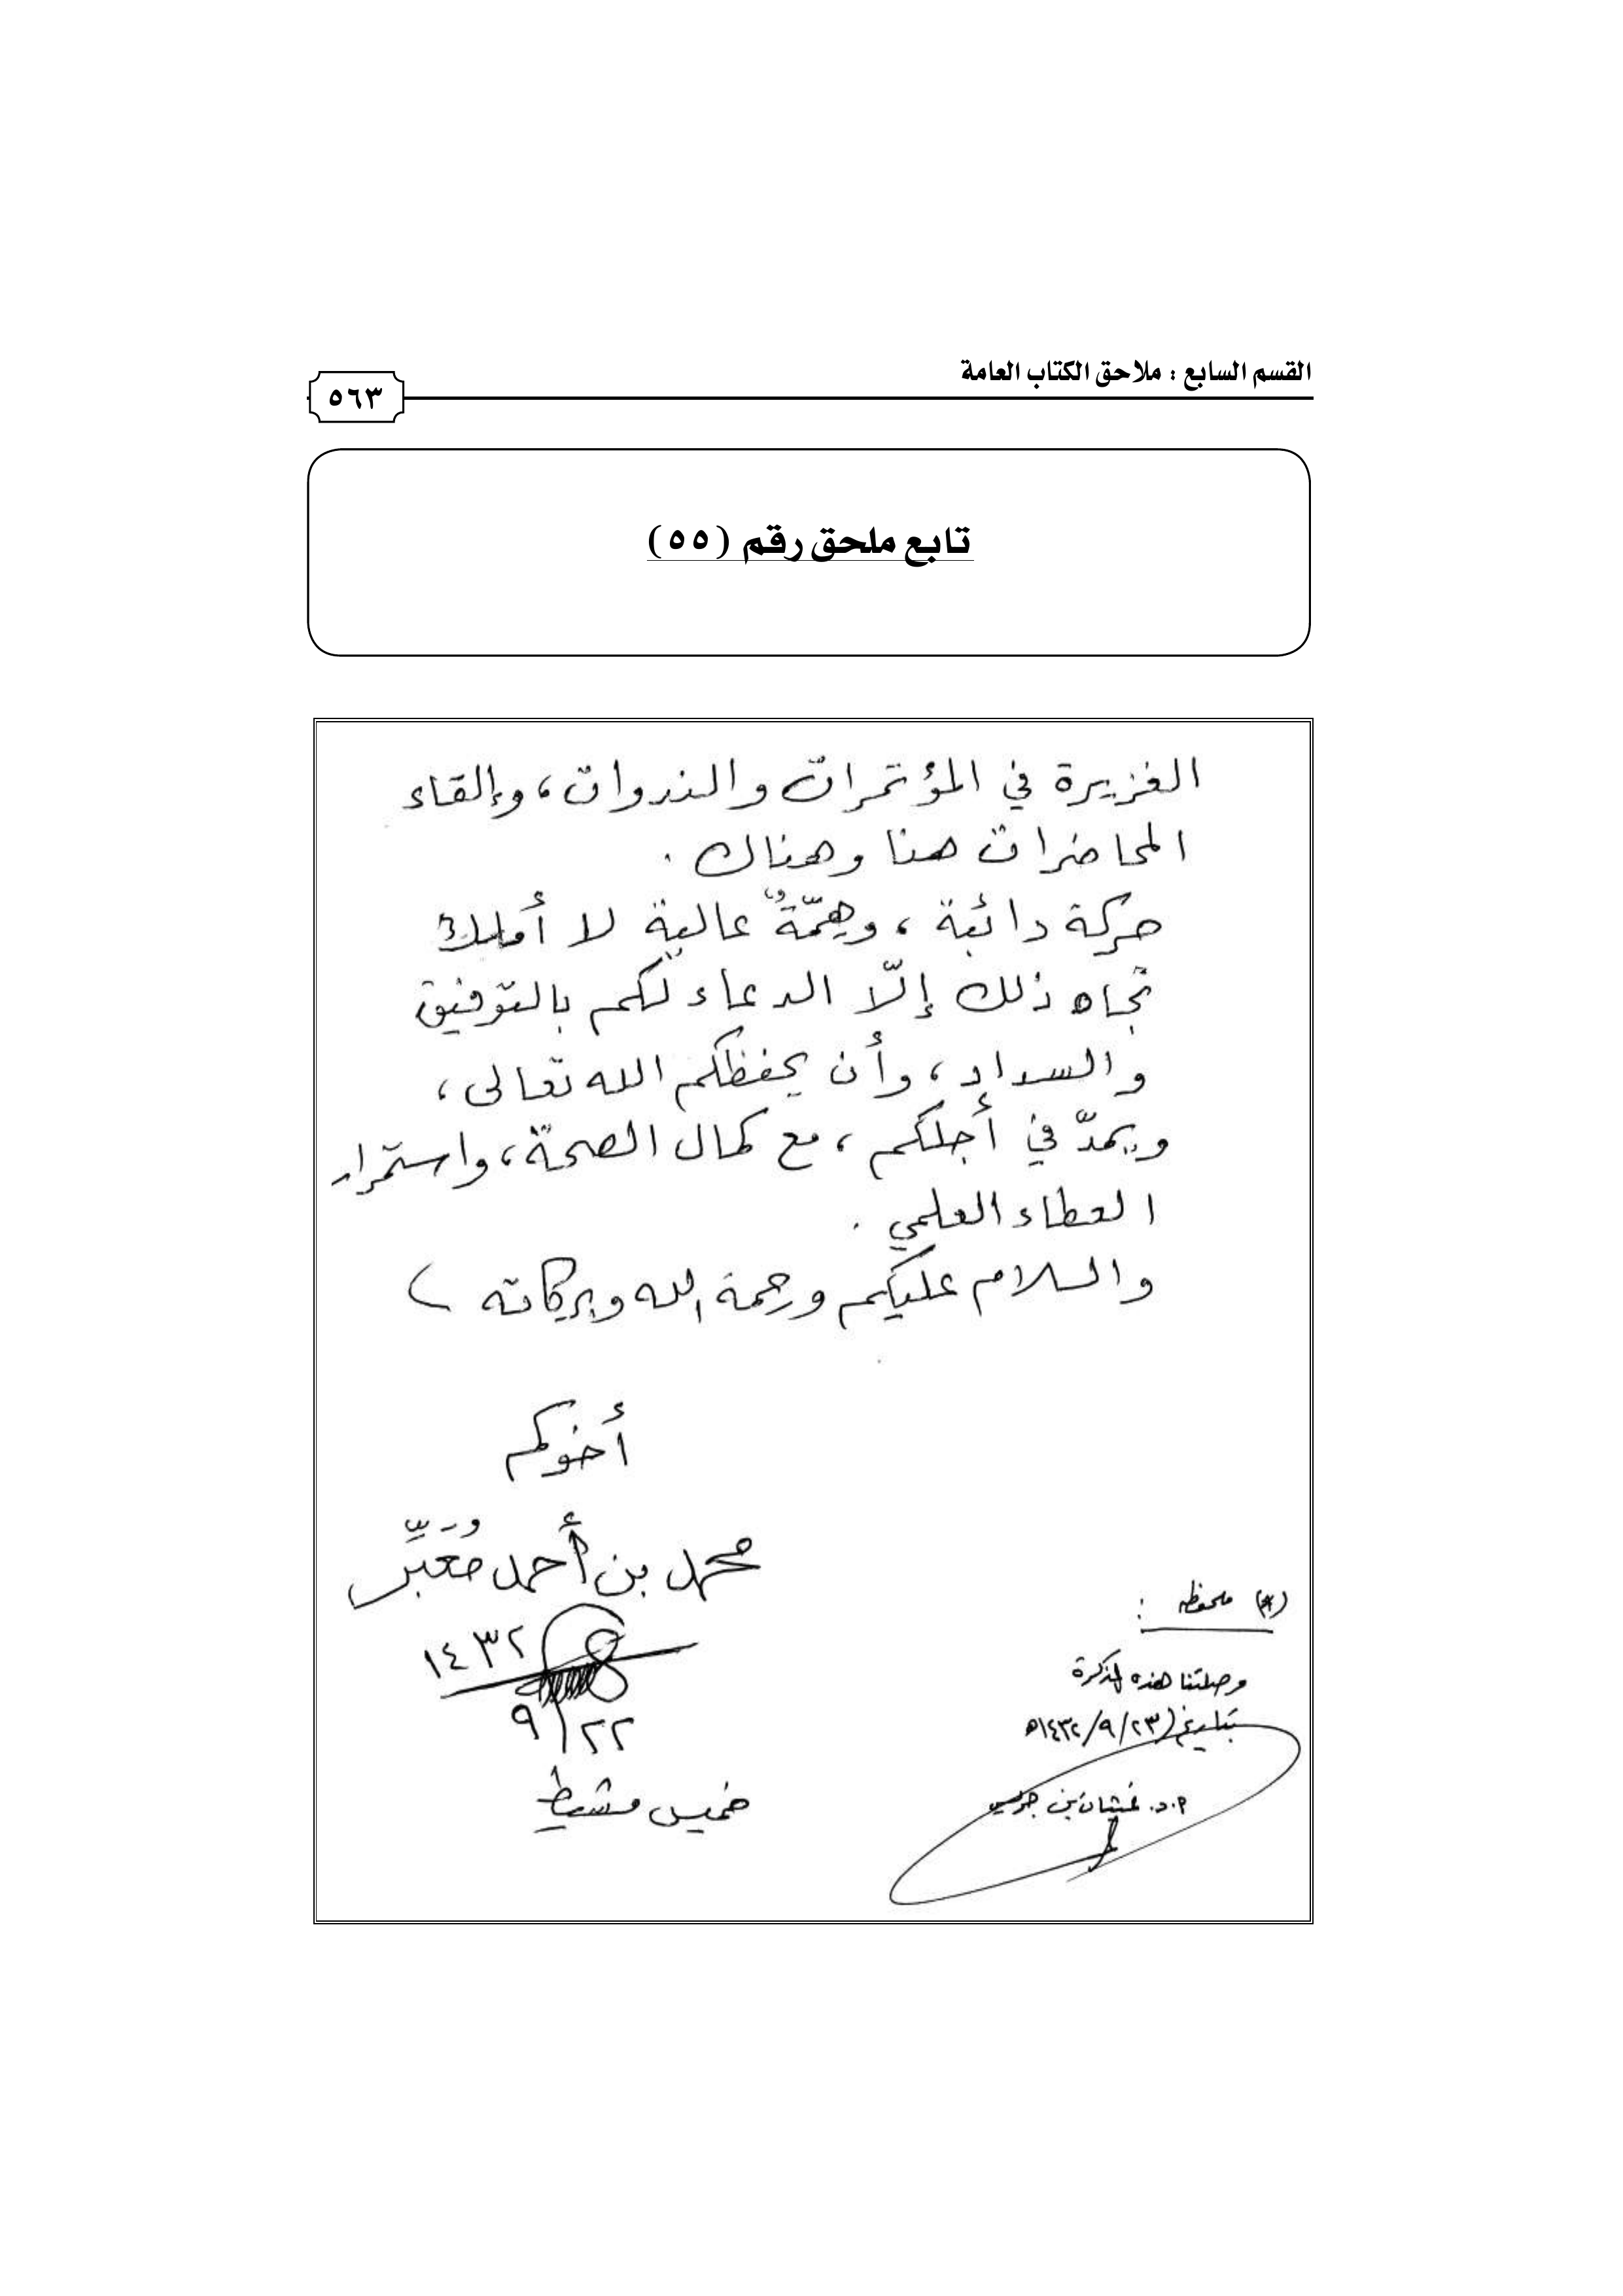 القسم السابع : ملاحق الكتاب العامة
٥٦٣
تابع ملحق رقم (٥٥)
الغزيرة في المؤتمرات والندوات، وإلقاء
المحاضرات هنا وهناك.
حركة دائبة، وهِمّةٌ عالية لا أملك
تجاه ذلك إلّا الدعاء لكم بالتوفيق
والسداد، وأن يحفظكم الله تعالى،
ويمدّ في أجلكم، مع كمال الصحة، واستمرار
العطاء العلمي.
والسلام عليكم ورحمة الله وبركاته
أخوكم
محمد بن أحمد مُعَبِّر
١٤٣٢
٩/٢٢
خميس مشيط
(*) ملحوظه :
وصلتنا هذه المذكرة
بتاريخ (٢٣/٩/١٤٣٢ه
أ.د. غيثان بن جريس